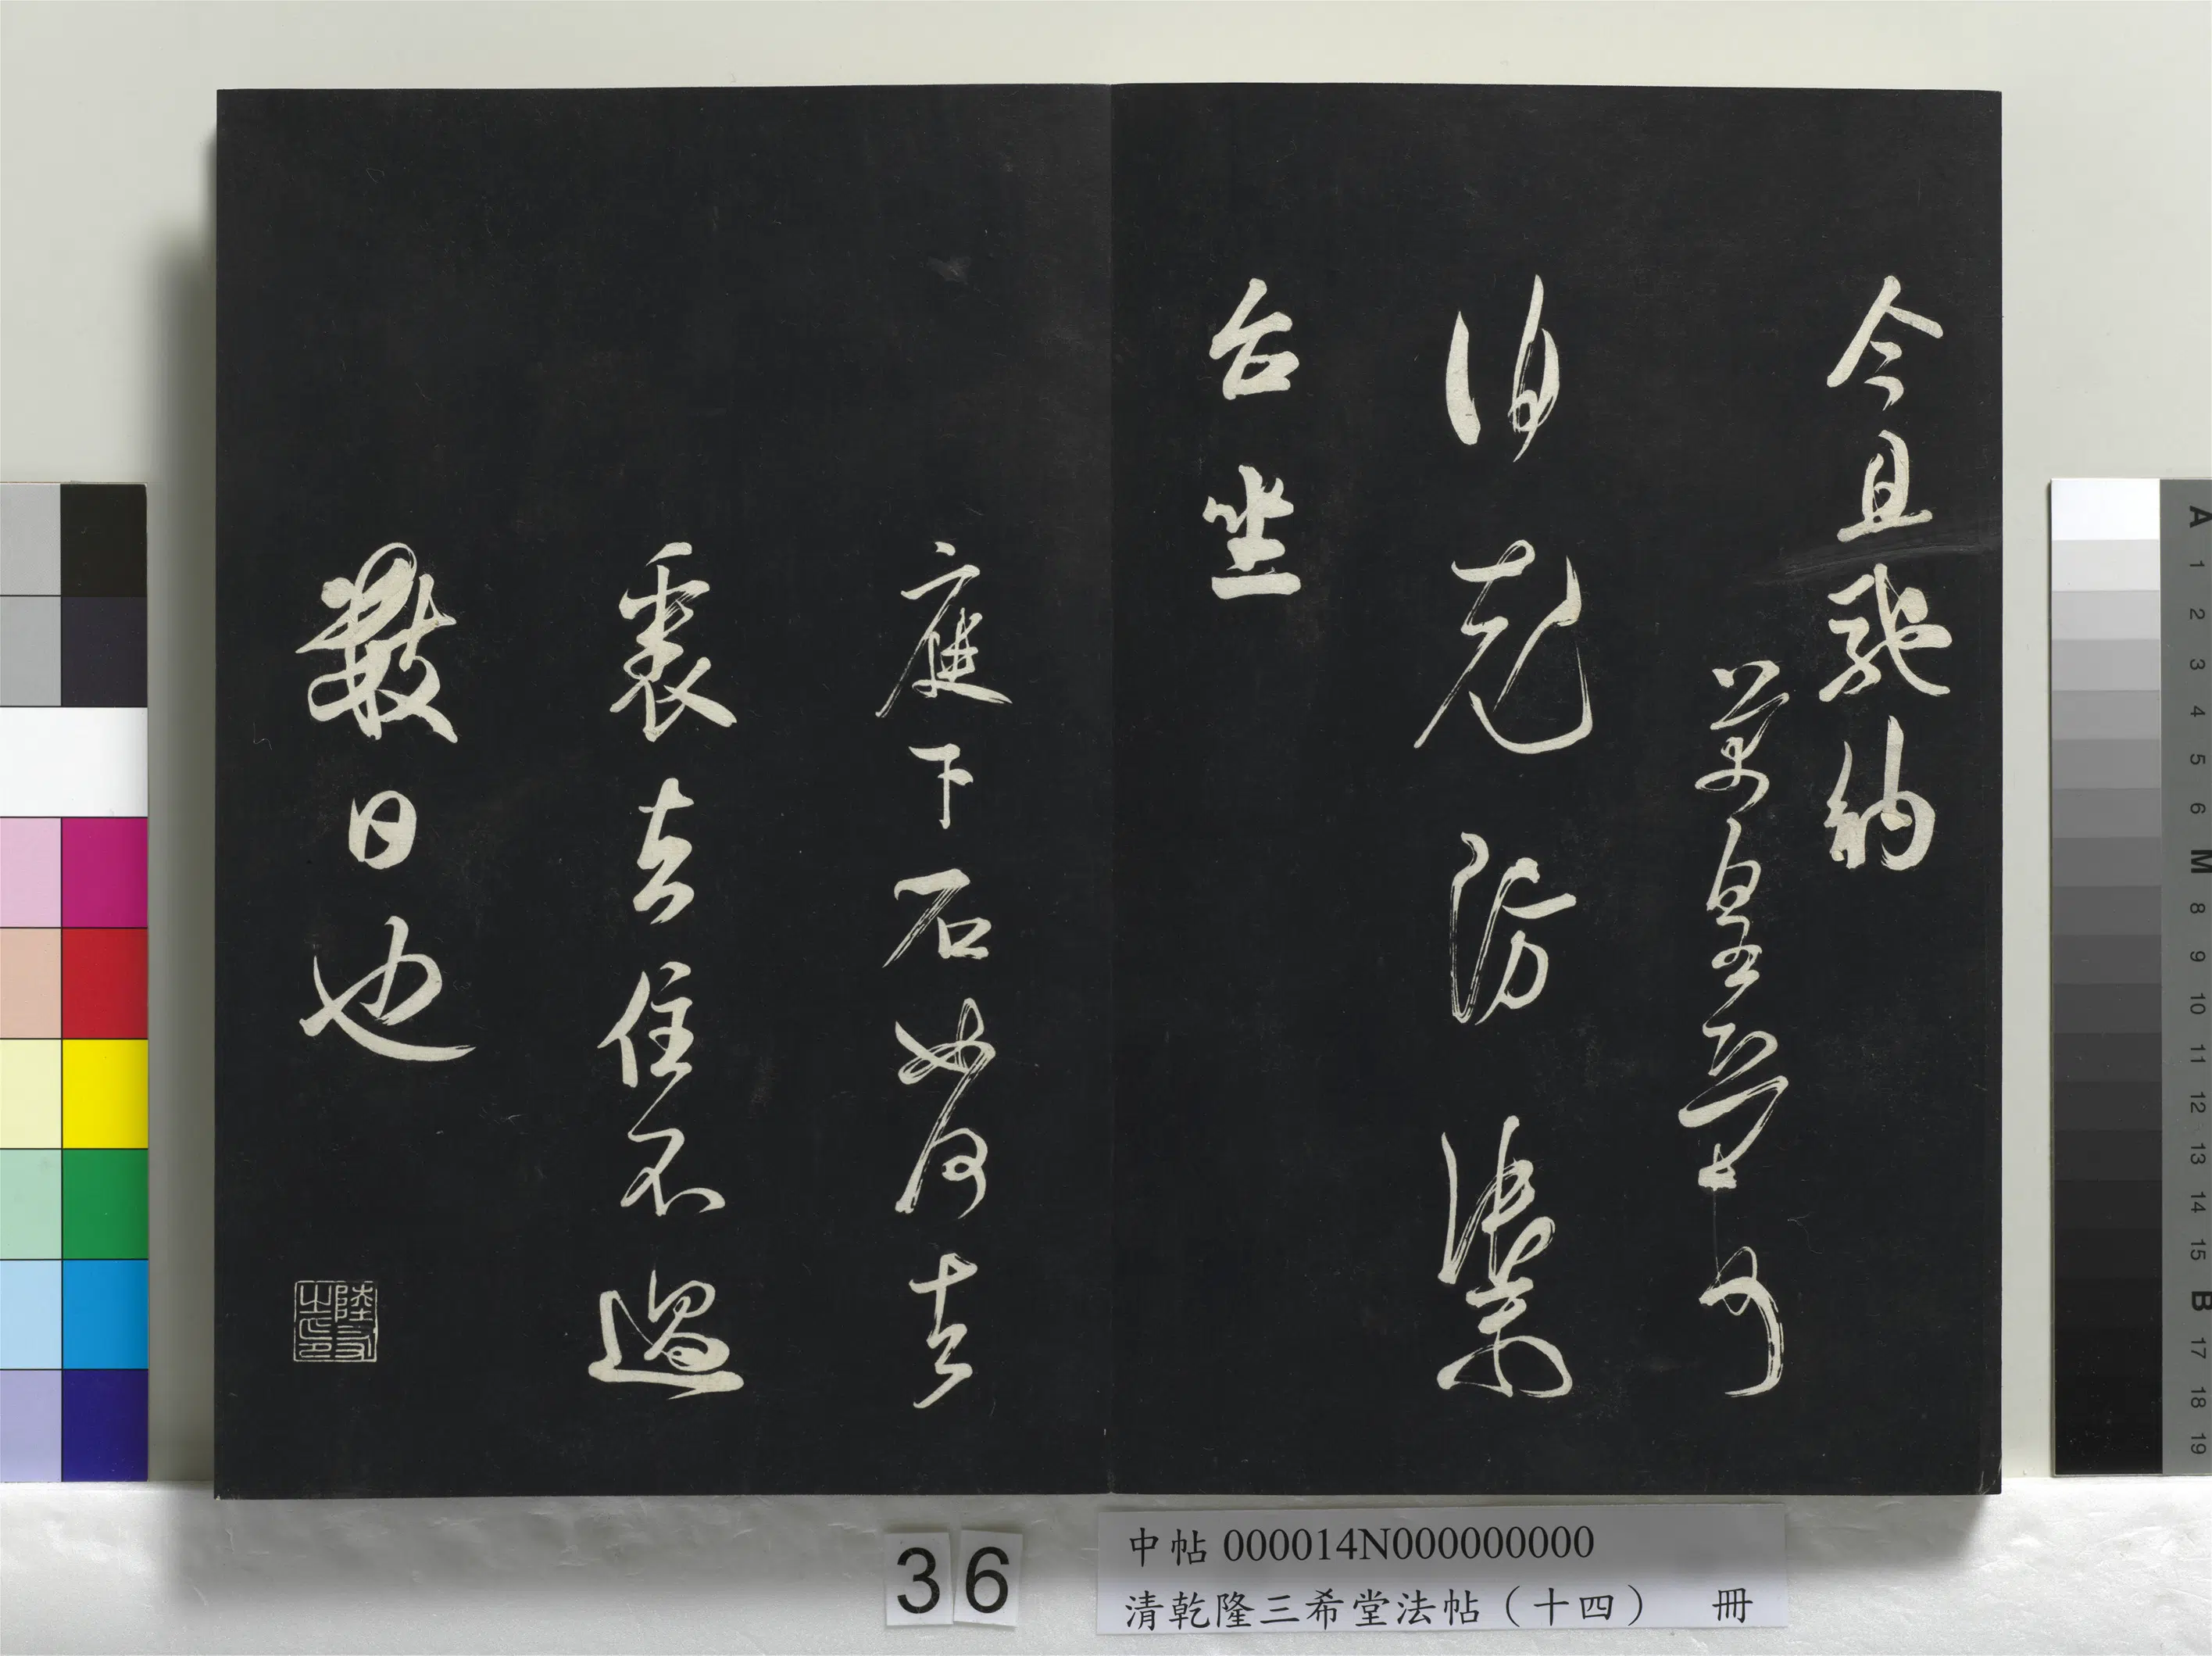 今且馳納
芾皇恐
伯充防禦
台坐
庭下石如何去
裹去住不過
數日也
陸友之印
36
中帖 000014N000000000
清乾隆三希堂法帖（十四） 冊
A 1 2 3 4 5 6 M 8 9 10 11 12 13 14 15 B 17 18 19